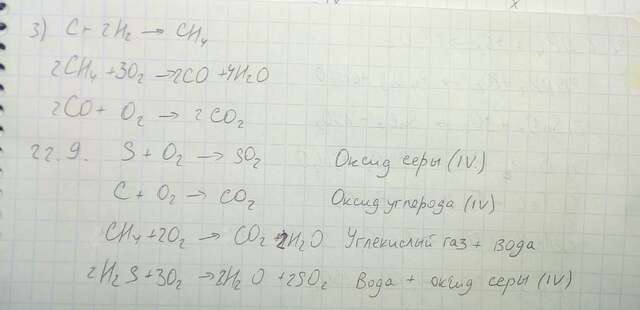 3) C + 2H₂ → CH₄
2CH₄ + 3O₂ → 2CO + 4H₂O
2CO + O₂ → 2CO₂
22.9. S + O₂ → SO₂ Оксид серы (IV)
C + O₂ → CO₂ Оксид углерода (IV)
CH₄ + 2O₂ → CO₂ + 2H₂O Углекислый газ + вода
2H₂S + 3O₂ → 2H₂O + 2SO₂ Вода + оксид серы (IV)